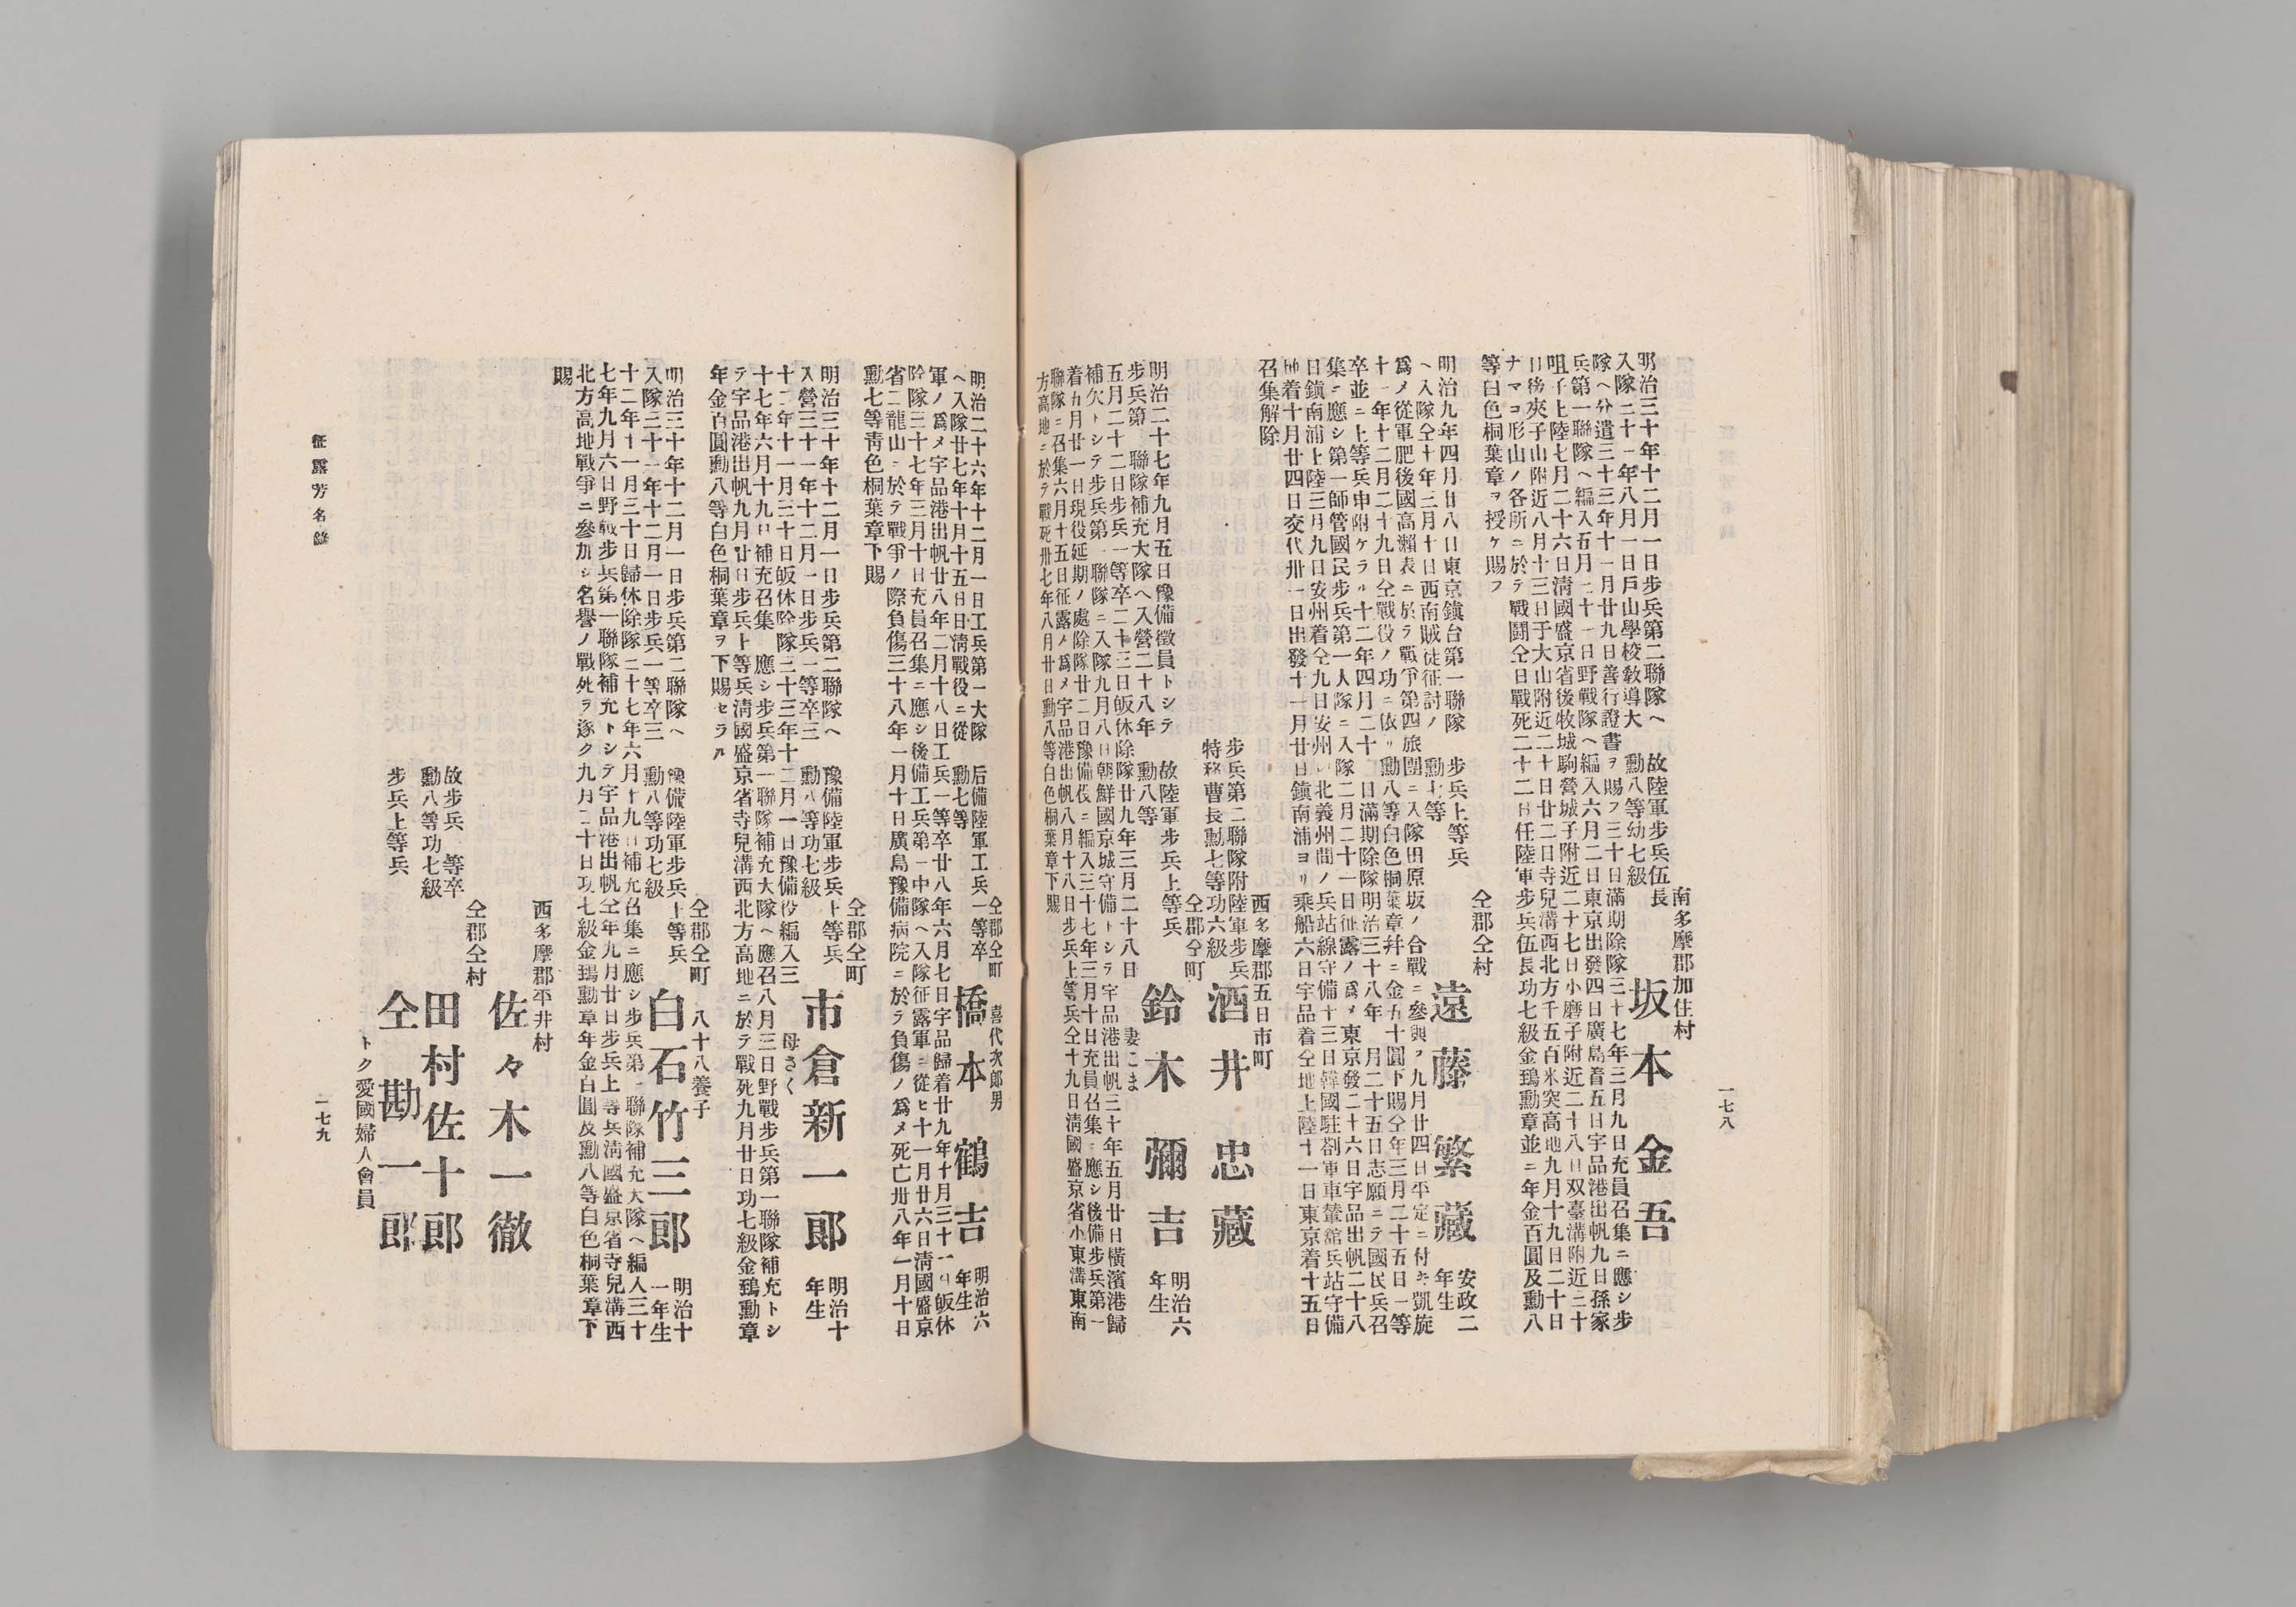 一七八
南多摩郡加住村
故陸軍步兵伍長
勳八等功七級
坂本金吾
明治三十年十二月一日步兵第二聯隊ヘ
入隊三十一年八月一日戶山學校敎導大
隊ヘ分遣三十三年十一月廿九日善行證書ヲ賜フ三十日滿期除隊三十七年三月九日充員召集ニ應シ步
兵第一聯隊ヘ編入五月二十一日野戰隊ヘ編入六月二日東京出發四日廣島着五日宇品港出帆九日孫家
咀子上陸七月二十六日淸國盛京省後牧城駒營城子附近二十七日小磨子附近二十八日双臺溝附近三十
日後夾子山附近八月十三日于大山附近二十日廿二日寺兒溝西北方千五百米突高地九月十九日二十日
ナマコ形山ノ各所ニ於テ戰鬪仝日戰死二十二日任陸軍步兵伍長功七級金鵄勳章並ニ年金百圓及勳八
等白色桐葉章ヲ授ケ賜フ
仝郡仝村
步兵上等兵
勳七等
遠藤繁藏
安政二
年生
明治九年四月廿八日東京鎭台第一聯隊
ヘ入隊仝十年三月十日西南賊徒征討ノ
爲メ從軍肥後國高瀨表ニ於テ戰爭第四旅團ニ入隊田原坂ノ合戰ニ參與ヲ九月廿四日平定ニ付キ凱旋
十一年十二月二十九日仝戰役ノ功ニ依リ勳八等白色桐葉章幷ニ金五十圓下賜仝年三月二十五日一等
卒並ニ上等兵申附ケラル十二年四月二十日滿期除隊明治三十八年一月二十五日志願ニテ國民兵召
集ニ應シ第一師管國民步兵第一大隊ニ入隊二月二十一日征露ノ爲メ東京發二十六日宇品出帆二十八
日鎭南浦上陸三月九日安州着仝九日安州ヨリ北義州間ノ兵站線守備十三日韓國駐剳軍車輦舘兵站守備
地着十月廿四日交代卅一日出發十一月廿日鎭南浦ヨリ乘船六日宇品着仝地上陸十一日東京着十五日
召集解除
西多摩郡五日市町
步兵第二聯隊附陸軍步兵
特務曹長勳七等功六級
酒井忠藏
仝郡仝町
故陸軍步兵上等兵
勳八等
妻こま
鈴木彌吉
明治六
年生
明治二十七年九月五日豫備徵員トシテ
步兵第一聯隊補充大隊ヘ入營二十八年
五月二十二日步兵一等卒二十三日皈休除隊廿九年三月二十八日
補欠トシテ步兵第一聯隊ニ入隊九月八日朝鮮國京城守備トシテ宇品港出帆三十年五月廿日橫濱港歸
着九月廿一日現役延期ノ處除隊廿二日豫備役ニ編入三十七年三月十日充員召集ニ應シ後備步兵第一
聯隊ニ召集六月十五日征露ノ爲メ宇品港出帆八月十八日步兵上等兵仝十九日淸國盛京省小東溝東南
方高地ニ於テ戰死卅七年八月廿日勳八等白色桐葉章下賜
仝郡仝町　喜代次郎男
后備陸軍工兵一等卒
勳七等
橋本鶴吉
明治六
年生
明治二十六年十二月一日工兵第一大隊
ヘ入隊廿七年十月十五日日淸戰役ニ從
軍ノ爲メ宇品港出帆廿八年二月十八日工兵一等卒廿八年六月七日宇品歸着廿九年十月三十一日皈休
除隊三十七年三月十日充員召集ニ應シ後備工兵第一中隊ヘ入隊征露軍ニ從ヒ十一月廿六日淸國盛京
省二龍山ニ於テ戰爭ノ際負傷三十八年一月十日廣島豫備病院ニ於テ負傷ノ爲メ死亡卅八年一月十日
勳七等靑色桐葉章下賜
仝郡仝町
豫備陸軍步兵上等兵
勳八等功七級
母さく
市倉新一郎
明治十
年生
明治三十年十二月一日步兵第二聯隊ヘ
入營三十一年十二月一日步兵一等卒三
十二年十一月三十日皈休除隊三十三年十二月一日豫備役編入三
十七年六月十九日補充召集ニ應シ步兵第一聯隊補充大隊ヘ應召八月三日野戰步兵第一聯隊補充トシ
テ宇品港出帆九月廿日步兵上等兵淸國盛京省寺兒溝西北方高地ニ於テ戰死九月廿日功七級金鵄勳章
年金百圓勳八等白色桐葉章ヲ下賜セラル
仝郡仝町　八十八養子
豫備陸軍步兵上等兵
勳八等功七級
白石竹三郎
明治十
一年生
明治三十年十二月一日步兵第二聯隊ヘ
入隊三十一年十二月一日步兵一等卒三
十二年十一月三十日歸休除隊三十七年六月十九日補充召集ニ應シ步兵第一聯隊補充大隊ヘ編入三十
七年九月六日野戰步兵第一聯隊補充トシテ宇品港出帆仝年九月廿日步兵上等兵淸國盛京省寺兒溝西
北方高地戰爭ニ參加シ名譽ノ戰死ヲ遂ク九月二十日功七級金鵄勳章年金百圓及勳八等白色桐葉章下
賜
西多摩郡平井村
佐々木一徹
仝郡仝村
故步兵一等卒
勳八等功七級
田村佐十郎
步兵上等兵
仝勘一郎
トク愛國婦人會員
征露芳名錄
一七九